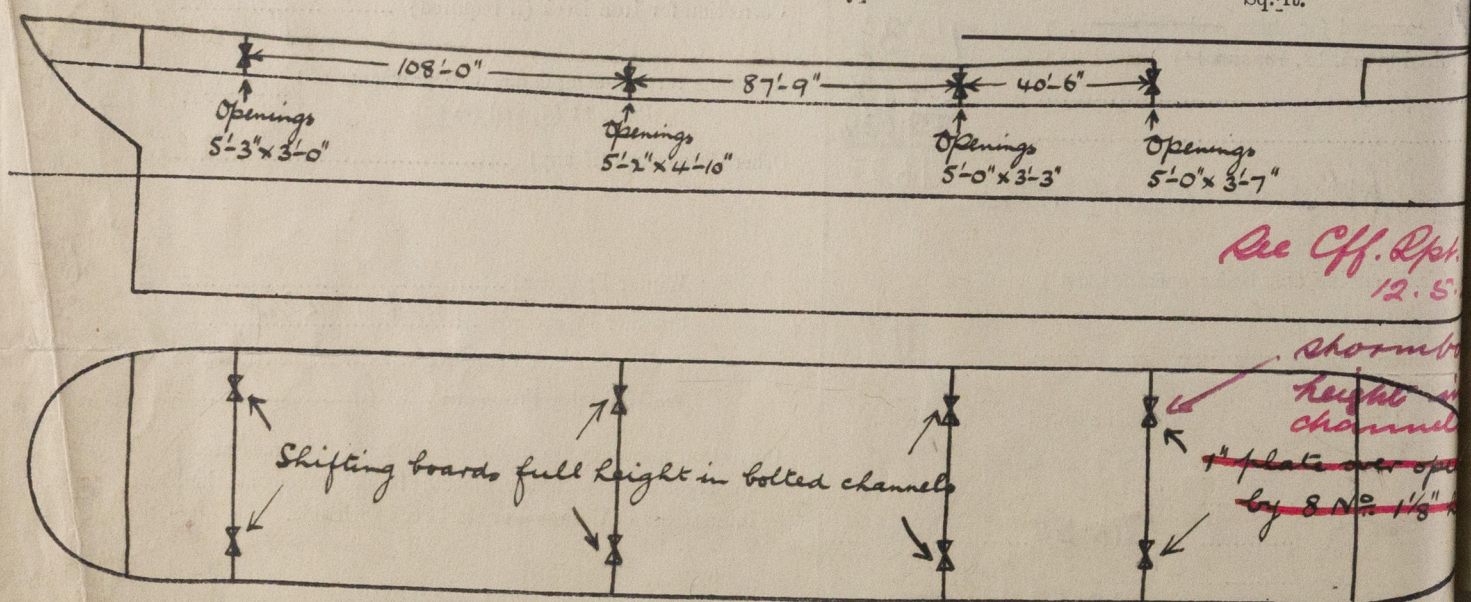 Sq. ft.
108'-0"
87'-9"
40'-6"
Openings
5'-3" x 3'-0"
Openings
5'-2" x 4'-10"
Openings
5'-0" x 3'-3"
Openings
5'-0" x 3'-7"
See Cff. Rpt.
12.5.
height
channel
Shifting boards full height in bolted channels
1" plate over
by 8 No. 1 1/8"